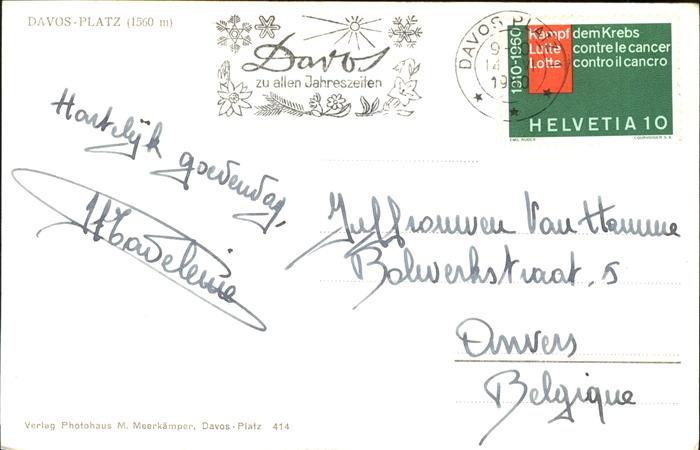 DAVOS-PLATZ (1560 m)
Davos
zu allen Jahreszeiten
DAVOS PLATZ
1910-1960
Kampf dem Krebs
Lutte contre le cancer
Lotte contro il cancro
HELVETIA 10
EMIL RUDER COURVOISIER S.A.
Hartelijk goedendag,
Madeleine
Juffrouwen Van Hamme
Bolwerkstraat, 5
Anvers
Belgique
Verlag Photohaus M. Meerkämper, Davos-Platz 414